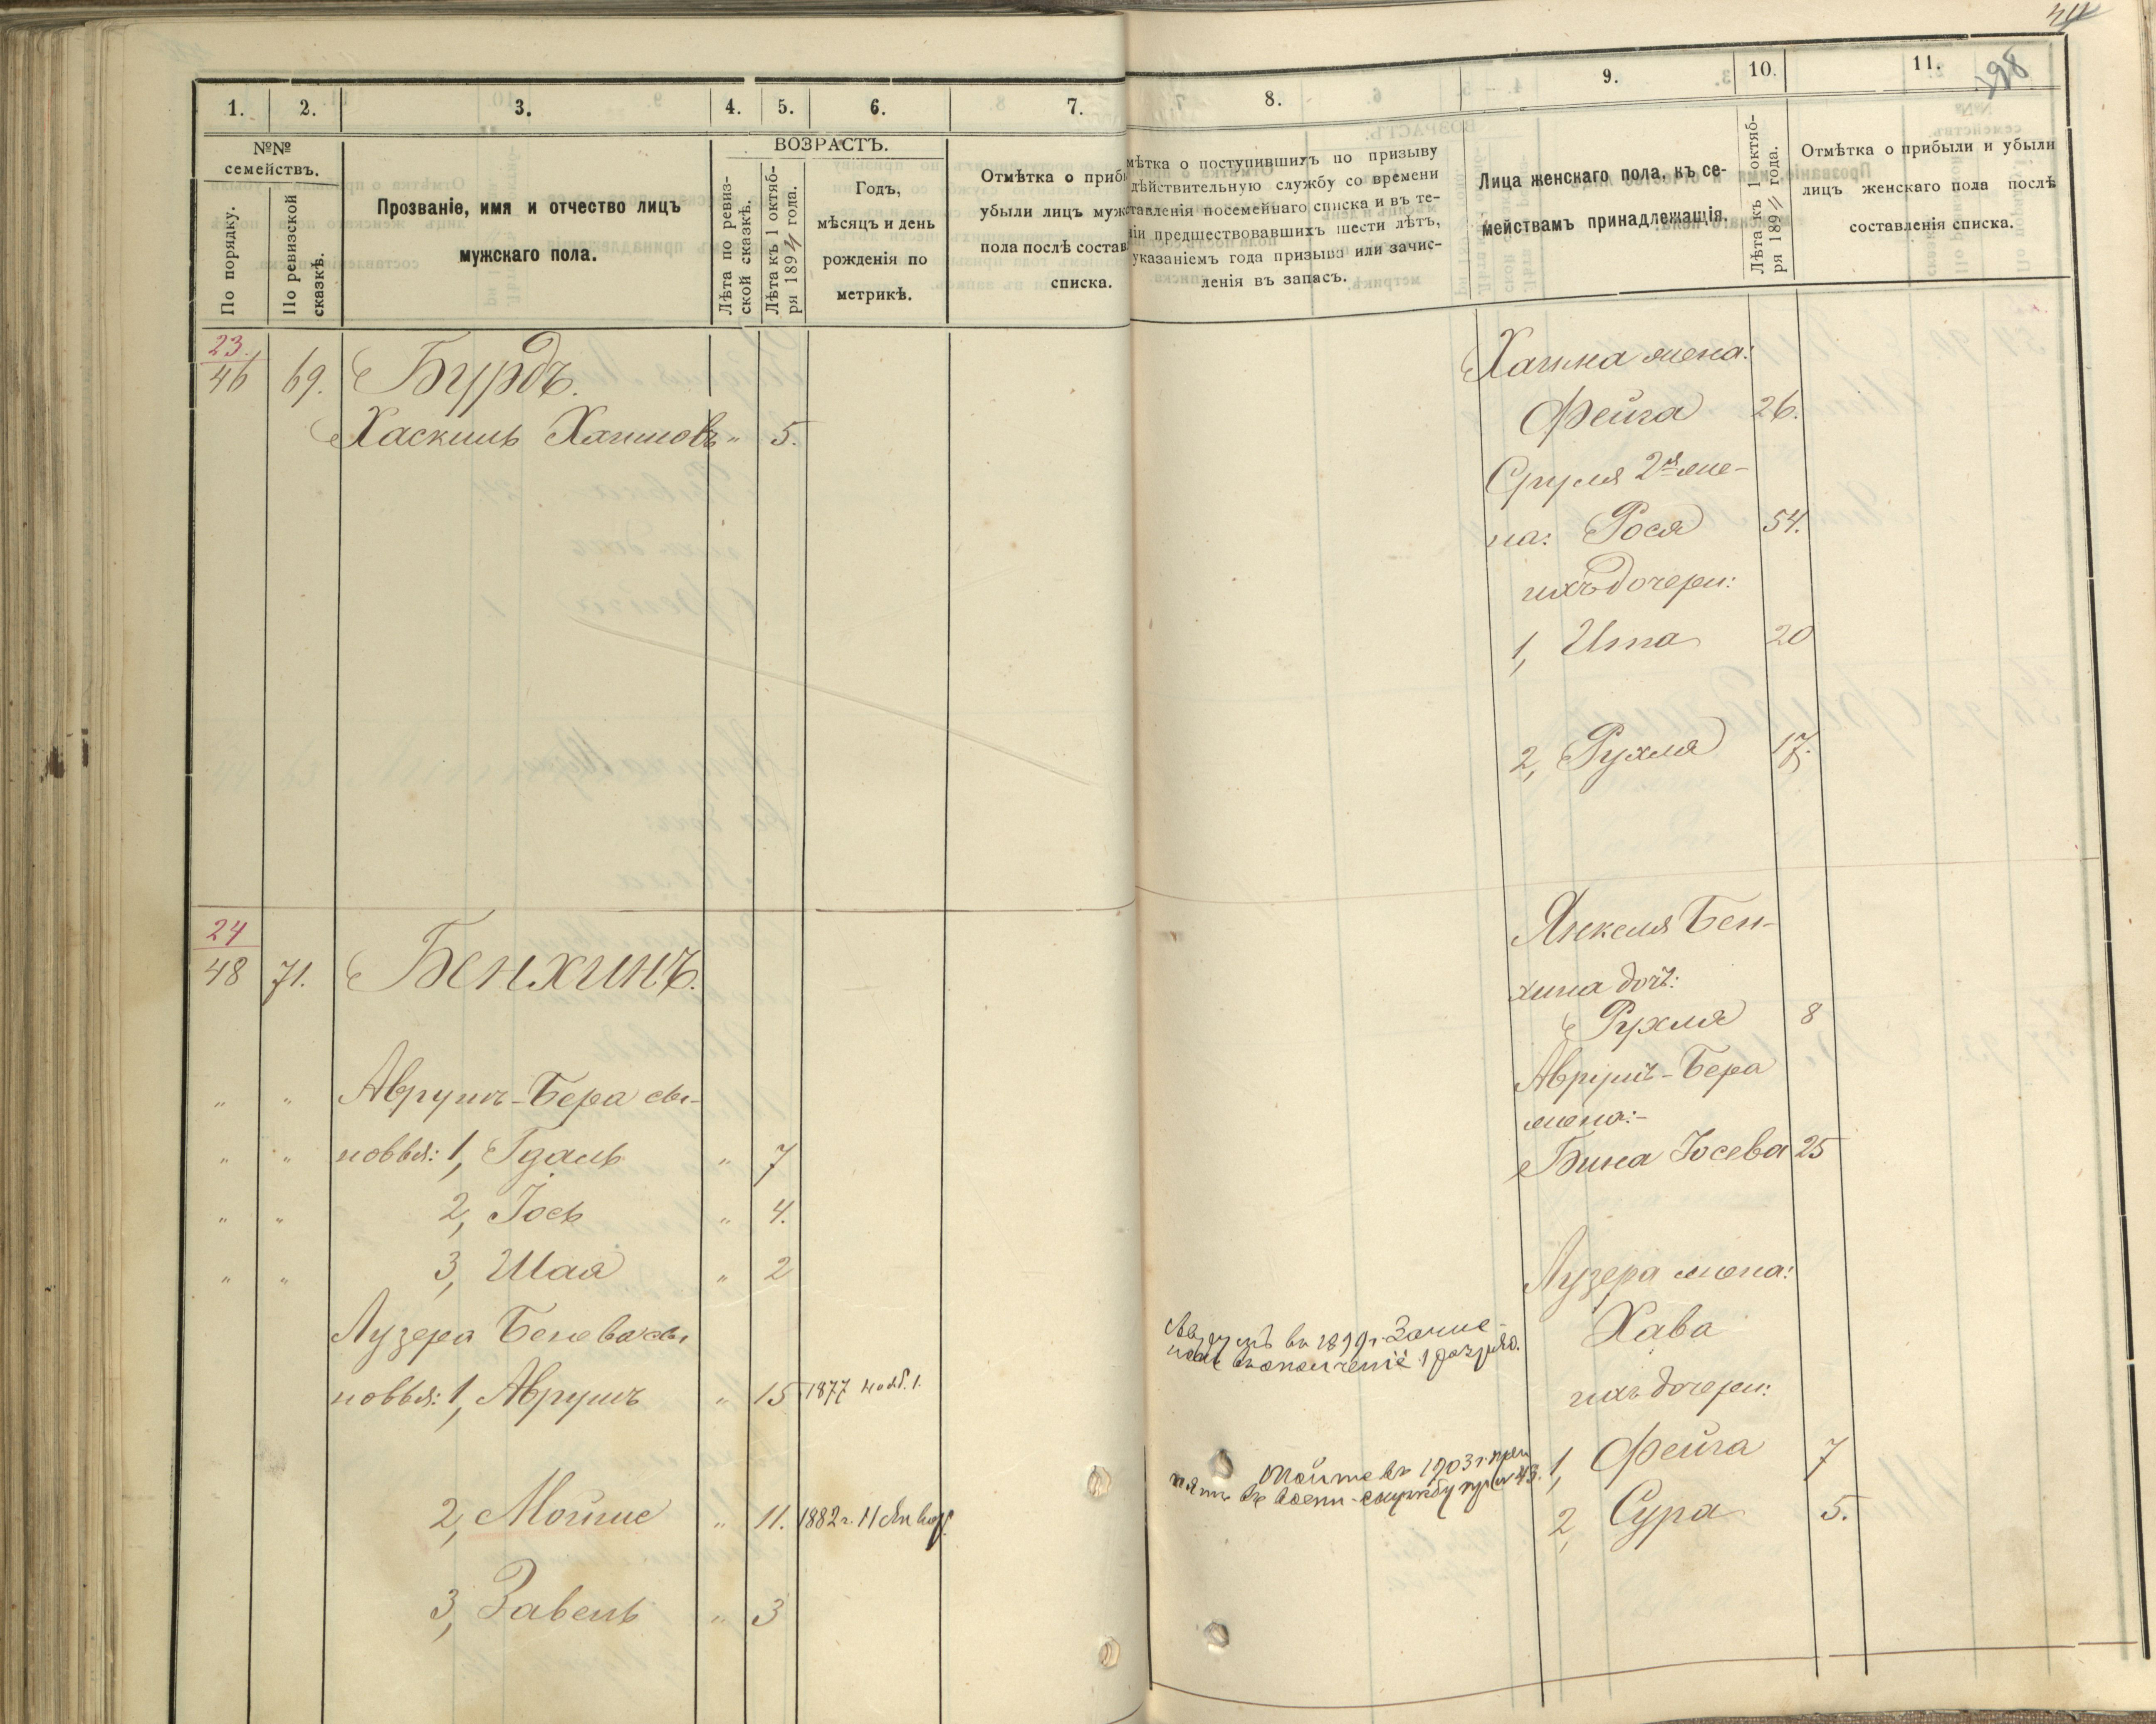 1. 2. 3. 4. 5. 6. 7.
№№ семействъ.
По порядку.
По ревизской сказкѣ.
Прозваніе, имя и отчество лицъ
мужскаго пола.
ВОЗРАСТЪ.
Лѣта по ревиз-
ской сказкѣ.
Лѣта къ 1 октяб-
ря 189 года.
Годъ,
мѣсяцъ и день
рожденія по
метрикѣ.
Отмѣтка о приб
убыли лицъ муж
пола послѣ состав
списка.
23 46 69. Бурдъ.
Хаскиль Хаимовъ " 5.
24 48 71. Бенхинъ.
" " Аврумъ-Бера сы-
" " новья: 1, Гдаль " 7
" " 2, Іось " 4.
" " 3, Шая " 2
Лузера Бенева сы
новья: 1, Аврумъ " 15 1877 нояб. 1.
2, Мойше " 11. 1882 г. 11 Январ.
3, Завель " 3
44
198
8. 9. 10. 11.
мѣтка о поступившихъ по призыву
дѣйствительную службу со времени
ставленія посемейнаго списка и въ те-
ніи предшествовавшихъ шести лѣтъ,
указаніемъ года призыва или зачис-
ленія въ запасъ.
Лица женскаго пола, къ се-
мействамъ принадлежащія.
Лѣта къ 1 октяб-
ря 189 года.
Отмѣтка о прибыли и убыли
лицъ женскаго пола послѣ
составленія списка.
Хаима жена:
Фейга 26.
Сруля 2я же-
на: Рося 54.
ихъ дочери:
1, Ита 20
2, Рухля 17.
Янкеля Бен-
хина дочь:
Рухля 8
Аврумъ-Бера
жена:-
Бина Іосева 25
Лузера жена:
Хава
ихъ дочери:
1, Фейга 7
2, Сура 5.
Аврумъ въ 1899 г. Зачис-
ленъ въ ополченіе 1 разряд.
Мойше въ 1903 г. при
нятъ въ воен. службу пр. 43.